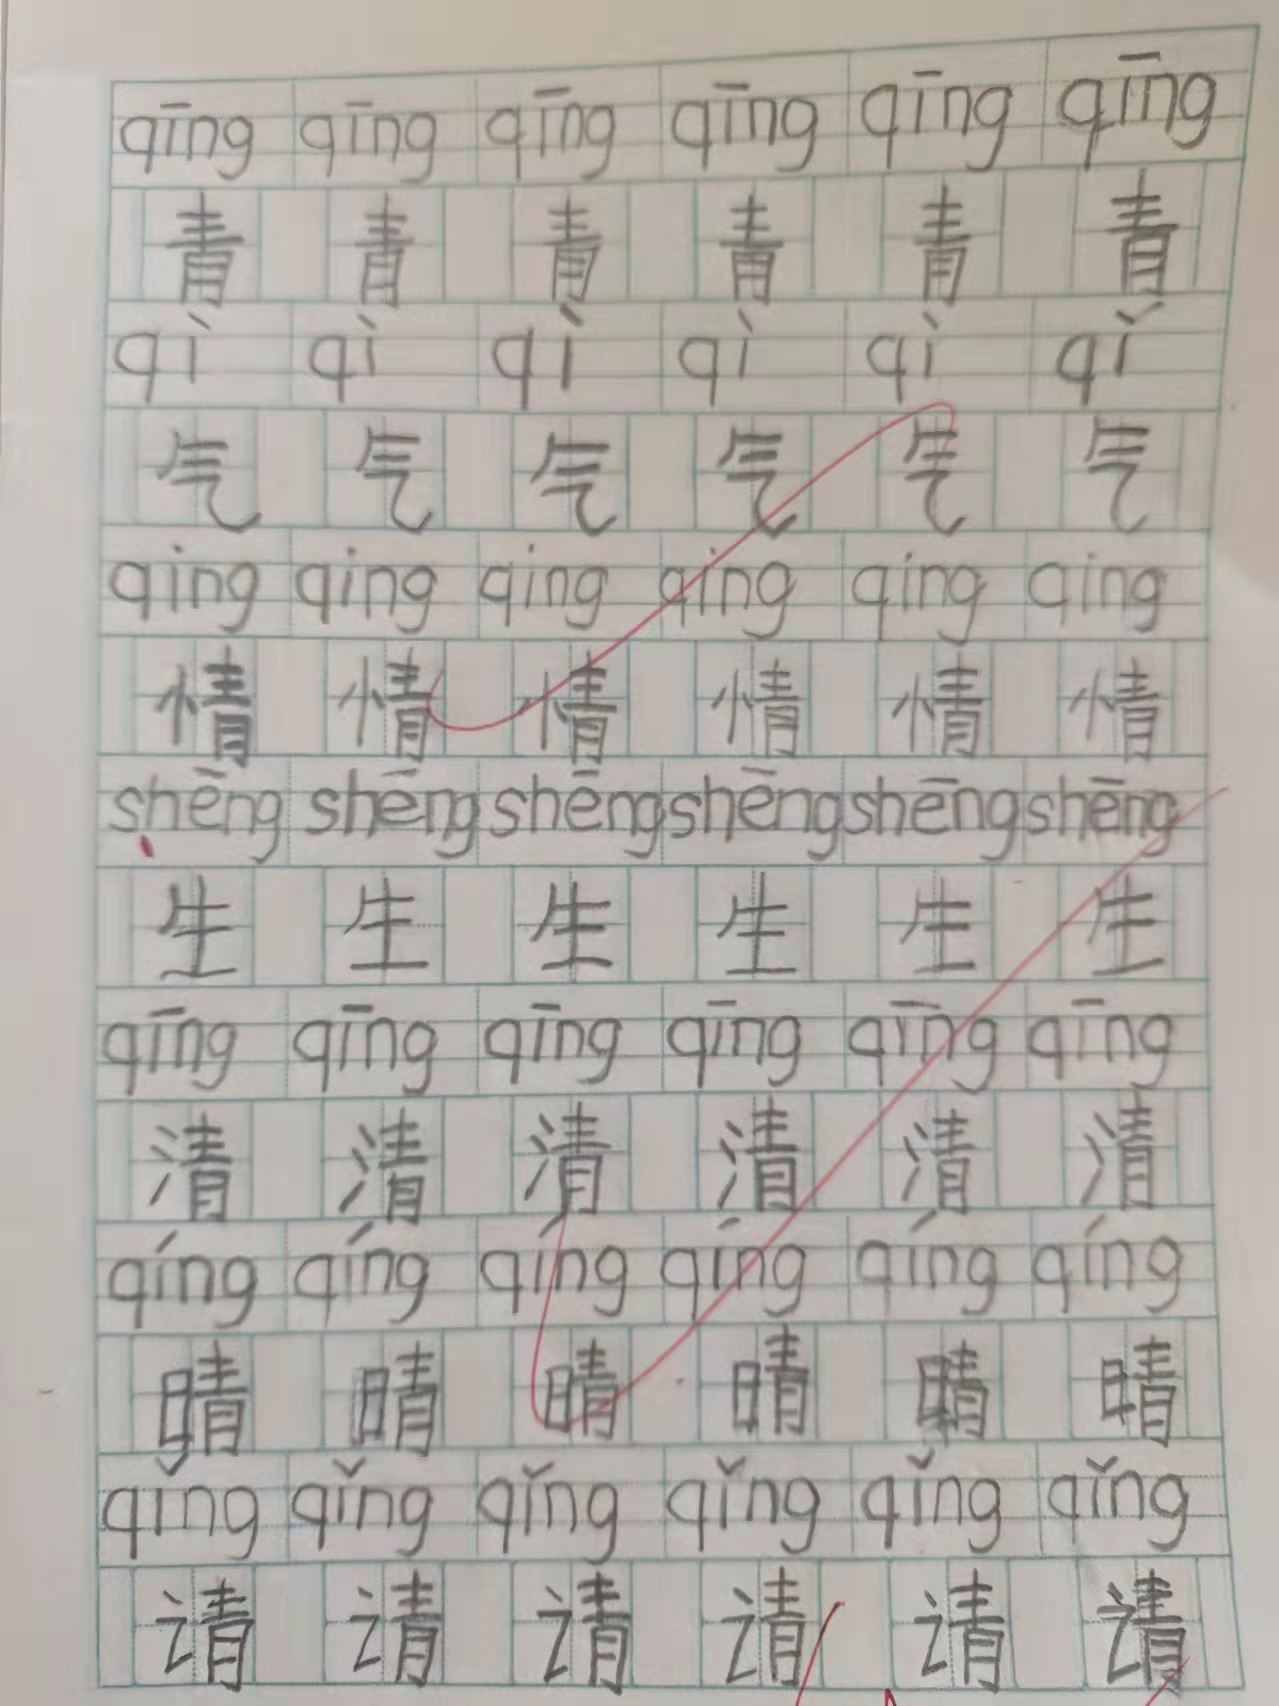 qīng qīng qīng qīng qīng qīng
青 青 青 青 青 青
qì qì qì qì qì qǐ
气 气 气 气 气 气
qing qing qing qing qing qing
情 情 情 情 情 情
shēng shēng shēng shēng shēng shēng
生 生 生 生 生 生
qīng qīng qīng qīng qīng qīng
清 清 清 清 清 清
qíng qíng qíng qíng qíng qíng
晴 晴 晴 晴 晴 晴
qǐng qǐng qǐng qǐng qǐng qǐng
请 请 请 请 请 请